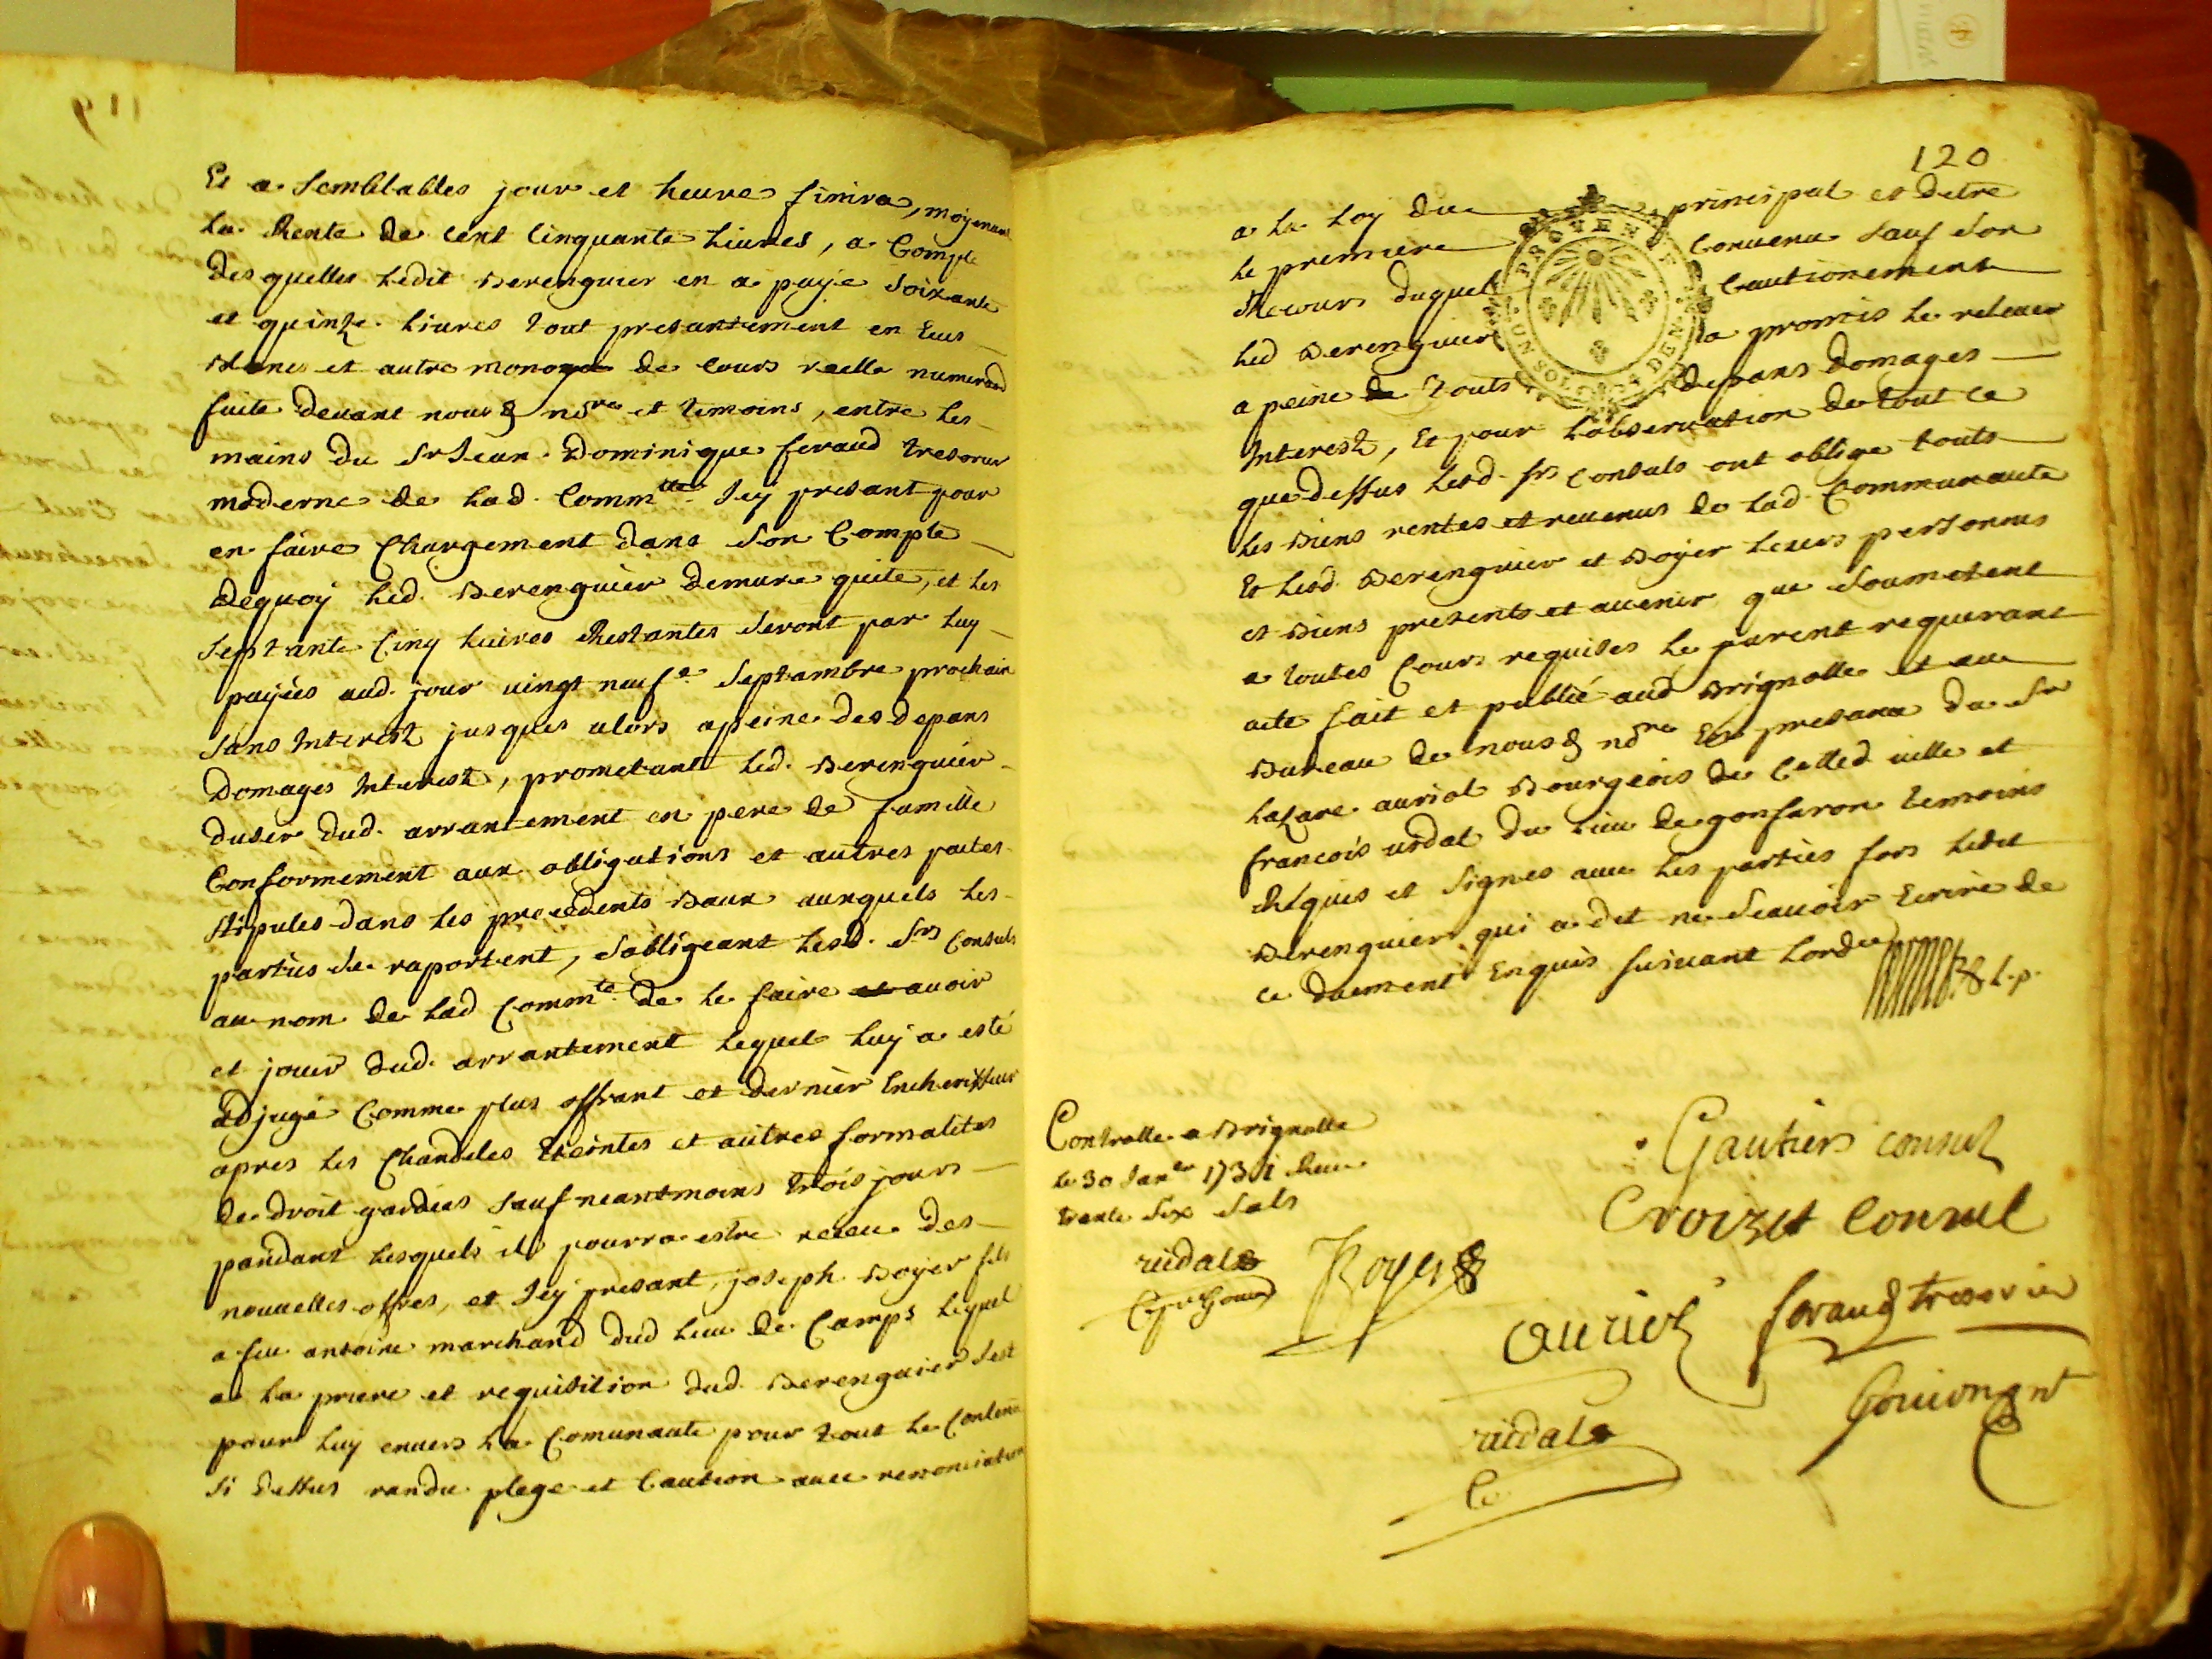 119
Et a semblables jour et heure finira, moyenant
la Rente de cent Cinquante Livres, a Compte
des quelles Ledit Berenguier en a paye Soixante
et quinze Livres tout presantement en Ecus
blancs et autre monoye de cours reelle numeraõn
faite devant nous & nore et temoins, entre les
mains du Sr Jean Dominique feraud tresorier
moderne de Lad. Commte Icy presant pour
en faire Chargement dans son Compte
Dequoy Led. Berenguier Demure quite, et les
Septante Cinq Luires Restantes Seront par Luy
payées aud. jour vingt neufe Septambre prochain
Sans Interest jusques alors a peine des depans
Domages Interest, prometant Led. Berenguier
duser dud. arrantement en pere de famille
Conformement aux obligations et autres pactes
Stipules dans les precedents Baux auxquels les
parties se raportent, s'obligeant Lesd. Srs Consuls
au nom de Lad Commte de le faire avoir
et jouir dud. arrantement lequel luy a esté
adjugé Comme plus offrant et dernier Encherisseur
apres les Chandeles Eteintes et autres formalites
de droit gardées Sauf neantmoins trois jours
pandant lesquels il pourra estre receu des
nouuelles offres, et Icy presant, joseph Boyer fils
a feu antoine marchand dud lieu de Camps lequel
a la priere et requisition dud. Berenguier Sest
pour luy envers La Comunaute pour tout le Contenu
Si dessus randu plege et Caution avec renonciation
120
a la Loy du principal et detre
le premiere Convenu Sauf Son
Recours duquel Cautionement
Led Berenguier a promis le relever
a peine de touts depans Domages
Interest, Et pour Lobservation de tout ce
que dessus Lesd. Srs Consuls ont oblige touts
les Biens rentes et revenus de Lad Communaute
Et Lesd. Berenguier et Boyer Leurs personnes
et Biens presents et avenir que Soumetent
a toutes Cours requises le parent requerant
acte fait et publié aud Brignolle et au
Bureau de nous & nore En presance du Sr
Lazare auriol Bourgeois de Cetted ville et
francois vidal du Lieu de gonfaron temoins
Requis et Signes avec les parties fors Ledit
Berenguier qui a dit ne Scauoir Ecrire de
ce duement Enquis suivant Lordce
PROVENCE
UN SOL 4 DEN.
Controlle a Brignolle
le 30 Janer 1731 Receu
trente Six Sols
vidal
Gautier consul
Croizet Consul
Boyer
auriol
feraud tresorier
vidal
Gouiongnt